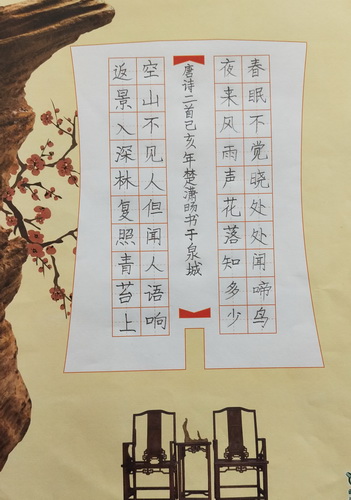 春眠不觉晓处处闻啼鸟
夜来风雨声花落知多少
唐诗二首己亥年楚潇旸书于泉城
空山不见人但闻人语响
返景入深林复照青苔上